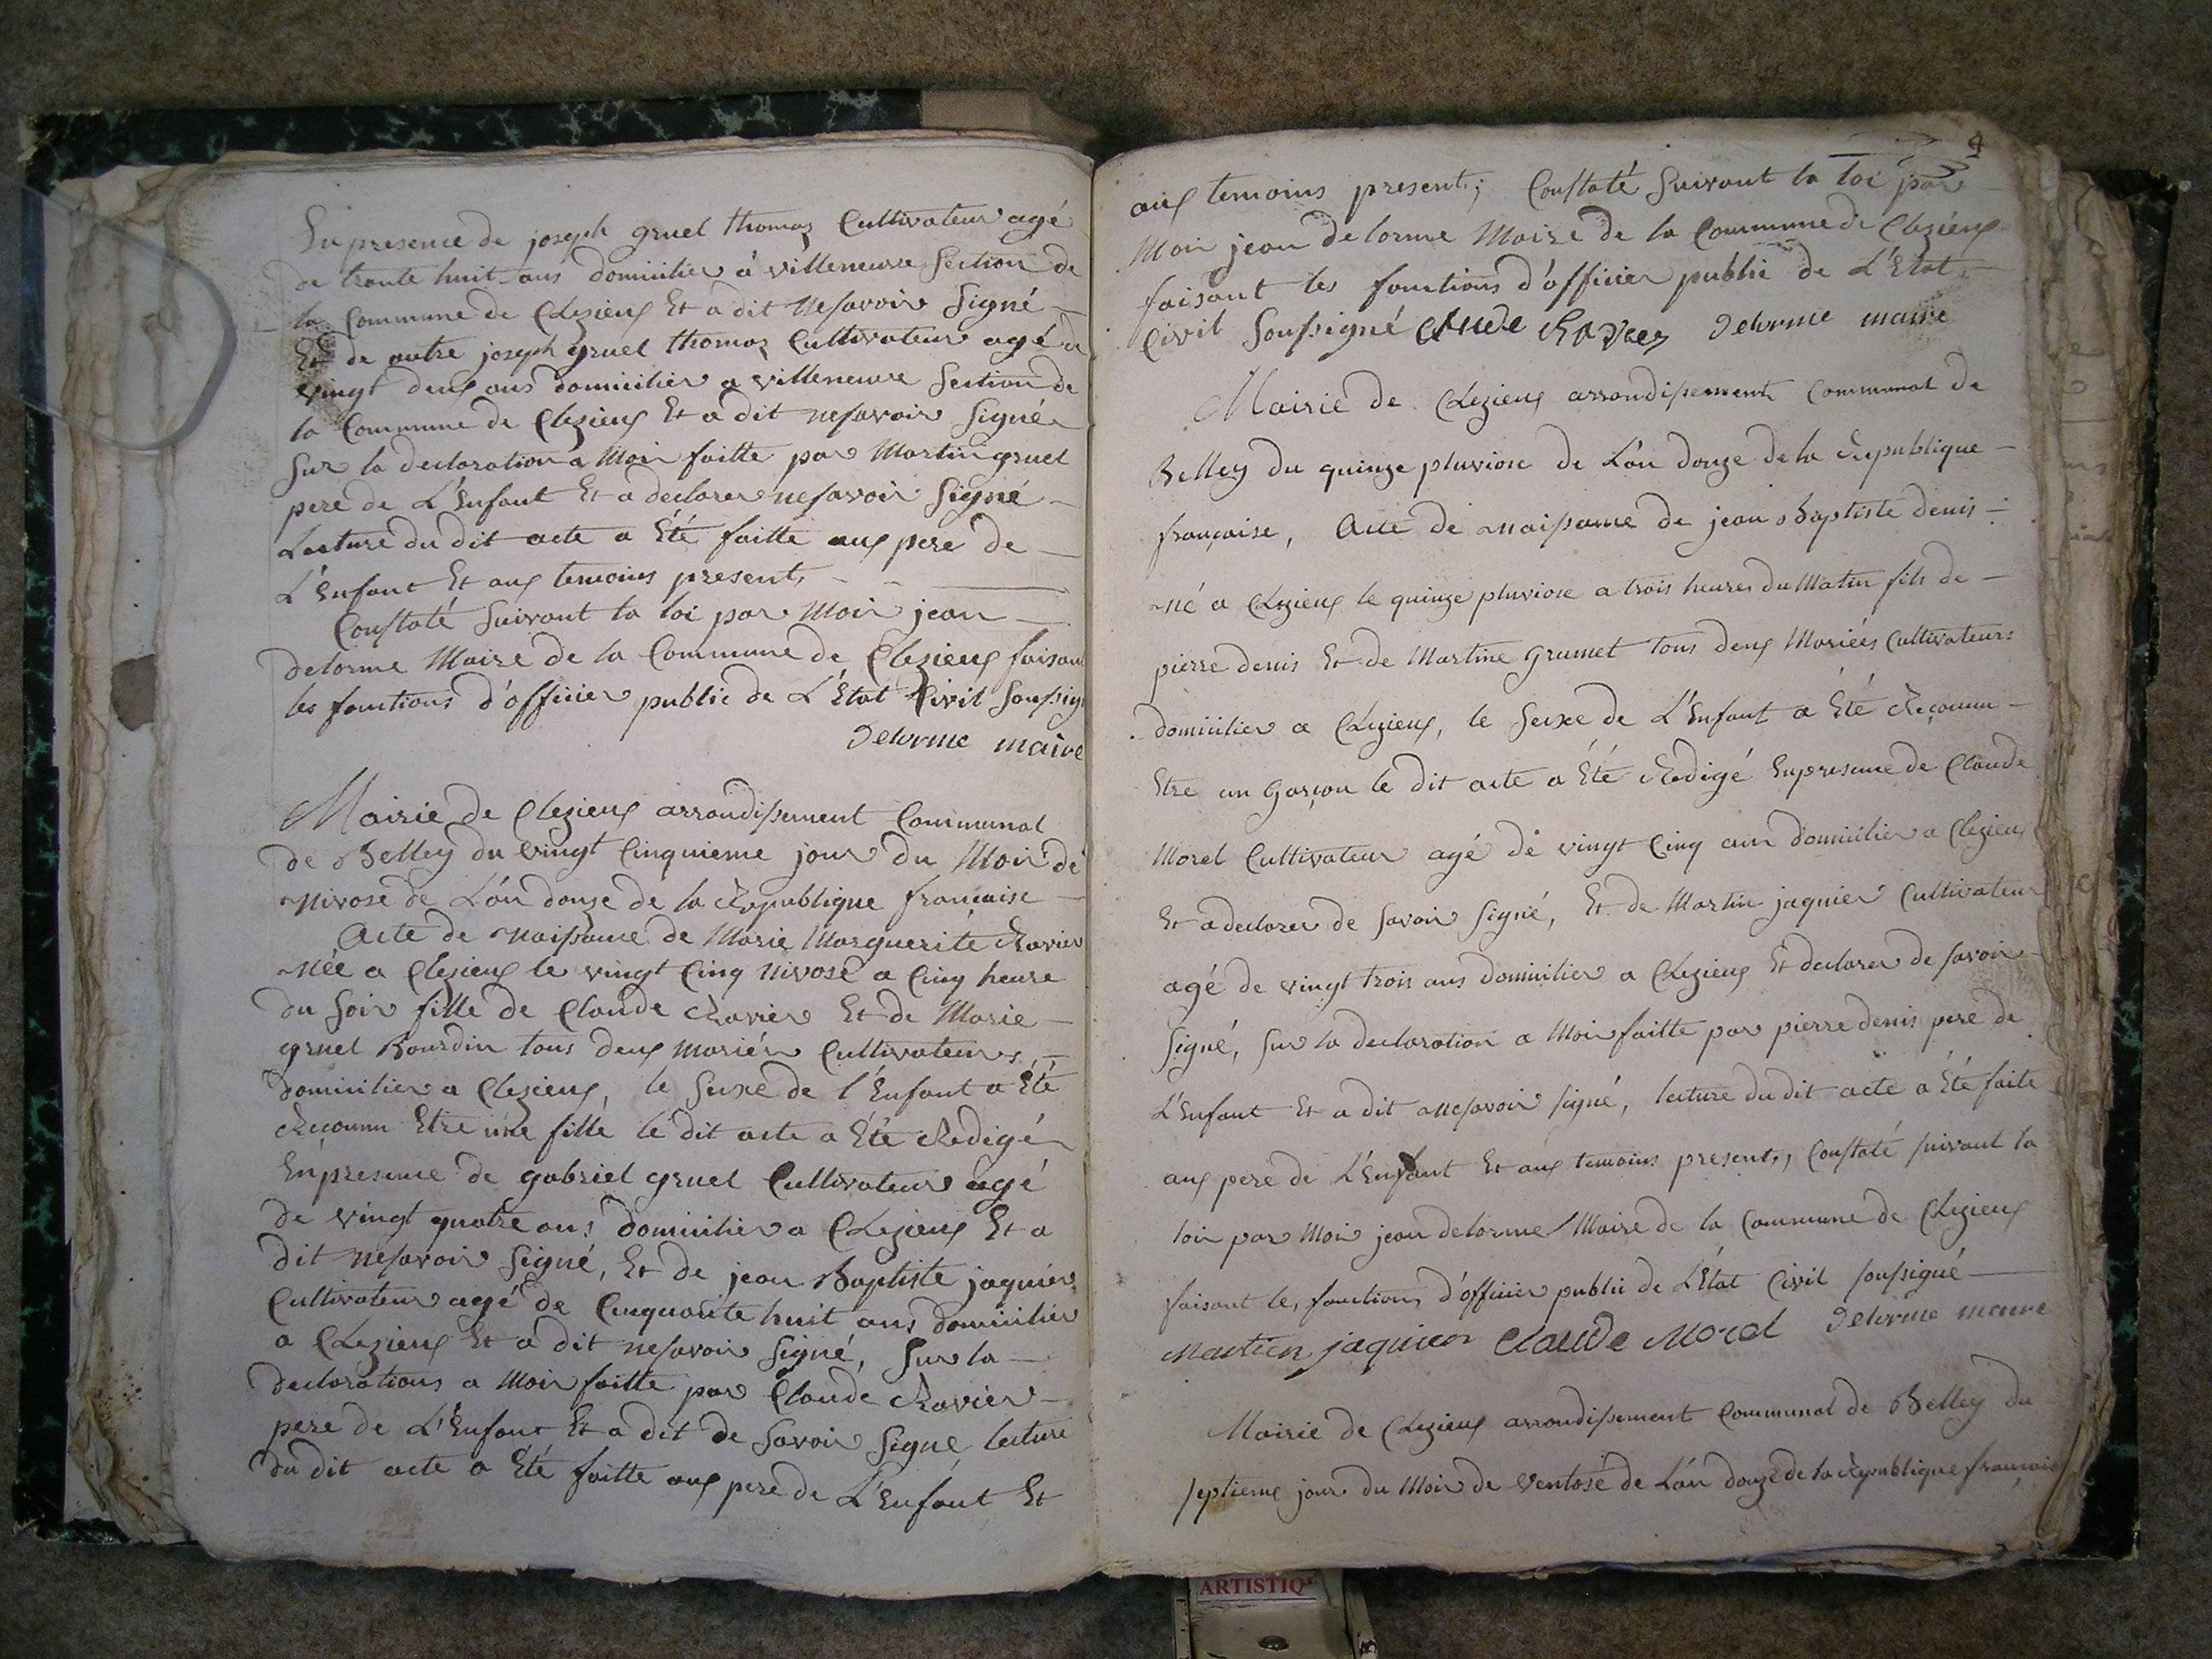 En presence de joseph gruel thomaz Cultivateur agé
de trante huit ans domicilier à villeneuve Section de
la Commune de Clezieux Et a dit ne savoir Signé
Et de autre joseph gruel thomaz Cultivateur agé de
vingt deux ans domicilier a villeneuve Section de
la Commune de Clezieux Et a dit ne savoir Signé
Sur la declaration a Moi faitte par Martin gruel
pere de L'Enfant Et a declarer ne savoir Signé
Lecture du dit acte a Eté faitte aux pere de
L'Enfant Et aux temoins present,
Constaté Suivant la loi par Moi jean
delorme Maire de la Commune de Clezieux faisant
les fonctions d'officier public de L'Etat Civil Soussig
Delorme maire
Mairie de Clezieux arrondissement Communal
de Belley du vingt Cinquieme jour du Mois de
nivose de L'an douze de la Republique francaise
Acte de Naissance de Marie Marguerite Ravier
Née a Clezieux le vingt Cinq nivose a Cinq heure
du Soir fille de Claude Ravier Et de Marie
gruel Bourdin tous deux mariér Cultivateurs,
domicilier a Clezieux, le Sexe de l'Enfant a Eté
Reconnu Etre une fille le dit acte a Eté Redigér
En presence de gabriel gruel Cultivateur agé
de vingt quatre ans domicilier a Clezieux Et a
dit ne savoir Signé, Et de jean Baptiste jaquier
Cultivateur agé de Cinquante huit ans domicilier
a Clezieux Et a dit ne savoir Signé, Sur la
declarations a Moi faitte par Claude Ravier
pere de L'Enfant Et a dit de Savoir Signe, lecture
du dit acte a Eté faitte aux pere de L'Enfant Et
aux temoins present; Constaté Suivant la loi par
Moi jean delorme Maire de la Commune de Clezieux
faisant les fonctions d'officier public de L'Etat
Civil Soussigné Claude Ravier Delorme maire
Mairie de Clezieux arrondissement Communal de
Belley du quinze pluviose de L'an douze de la Republique
française, Acte de Naissance de jean Baptiste denis
Né a Clezieux le quinze pluviose a trois heures du Matin fils de
pierre denis Et de Martine Grumet tous deux Mariées Cultivateurs
domicilier a Clezieux, le Sexe de L'Enfant a Eté Reconnu
Etre un Garçon le dit acte a Eté Redigé En presence de Claude
Morel Cultivateur agé de vingt Cinq ans domicilier a Clezieux
Et a declarer de Savoir Signé, Et de Martin jaquier Cultivateur
agé de vingt trois ans domicilier a Clezieux Et declarer de Savoir
Signé, Sur la declaration a Moi faitte par pierre denis pere de
L'Enfant Et a dit ne savoir signé, lecture du dit acte a Eté faite
aux pere de L'Enfant Et aux temoins present, Constaté suivant la
loi par Moi jean delorme Maire de la Commune de Clezieux
faisant les fonctions d'officier public de L'Etat Civil soussigné
Martien jaquier Claude Morel Delorme maire
Mairie de Clezieux arrondissement Communal de Belley du
septieme jour du Mois de Ventose de L'an douze de la Republique francais
ARTISTIQ